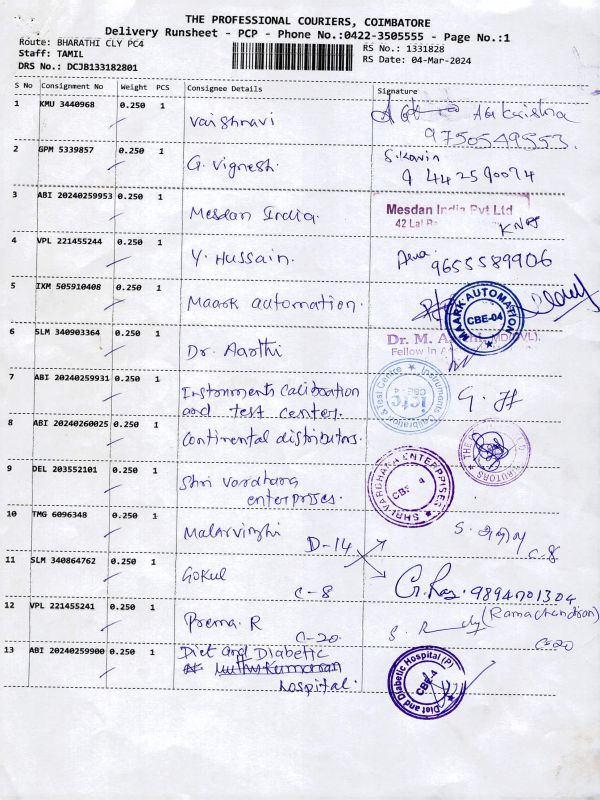 THE PROFESSIONAL COURIERS, COIMBATORE
Delivery Runsheet - PCP - Phone No.:0422-3505555 - Page No.:1
Route: BHARATHI CLY PC4
RS No.: 1331828
Staff: TAMIL
RS Date: 04-Mar-2024
DRS No.: DCJB133182801
S No Consignment No Weight PCS Consignee Details Signature
1 KMU 3440968 0.250 1 Vaishnavi
9750549553.
2 GPM 5339857 0.250 1 G. Vignesh S. Kavin
9442590074
3 ABI 20240259953 0.250 1 Mesdan India. Mesdan India Pvt Ltd
42 Lal
4 VPL 221455244 0.250 1 Y. Hussain. 9655589906
5 IXM 505910408 0.250 1 Maark automation. MAARK AUTOMATION CBE-04
6 SLM 340903364 0.250 1 Dr. Aarthi Dr. M.
Fellow in
7 ABI 20240259931 0.250 1 Instruments Calibration
and test center. Instruments Calibration & Test Centre ictc CBE - 4
8 ABI 20240260025 0.250 1 Continental distributors.
9 DEL 203552101 0.250 1 Shri Vardhara
enterprises. SHRI VARDHARA ENTERPRISES CBE 4
10 TMG 6096348 0.250 1 Malarvinzhi
D-14 C-8
11 SLM 340864762 0.250 1 Gokul
C-8 9894701304
12 VPL 221455241 0.250 1 Prema. R
C-20 (Ramachandran)
C-20
13 ABI 20240259900 0.250 1 Diet and Diabetic
Muthu Kumaran
hospital. Diet and Diabetic Hospital (P) CBE-4